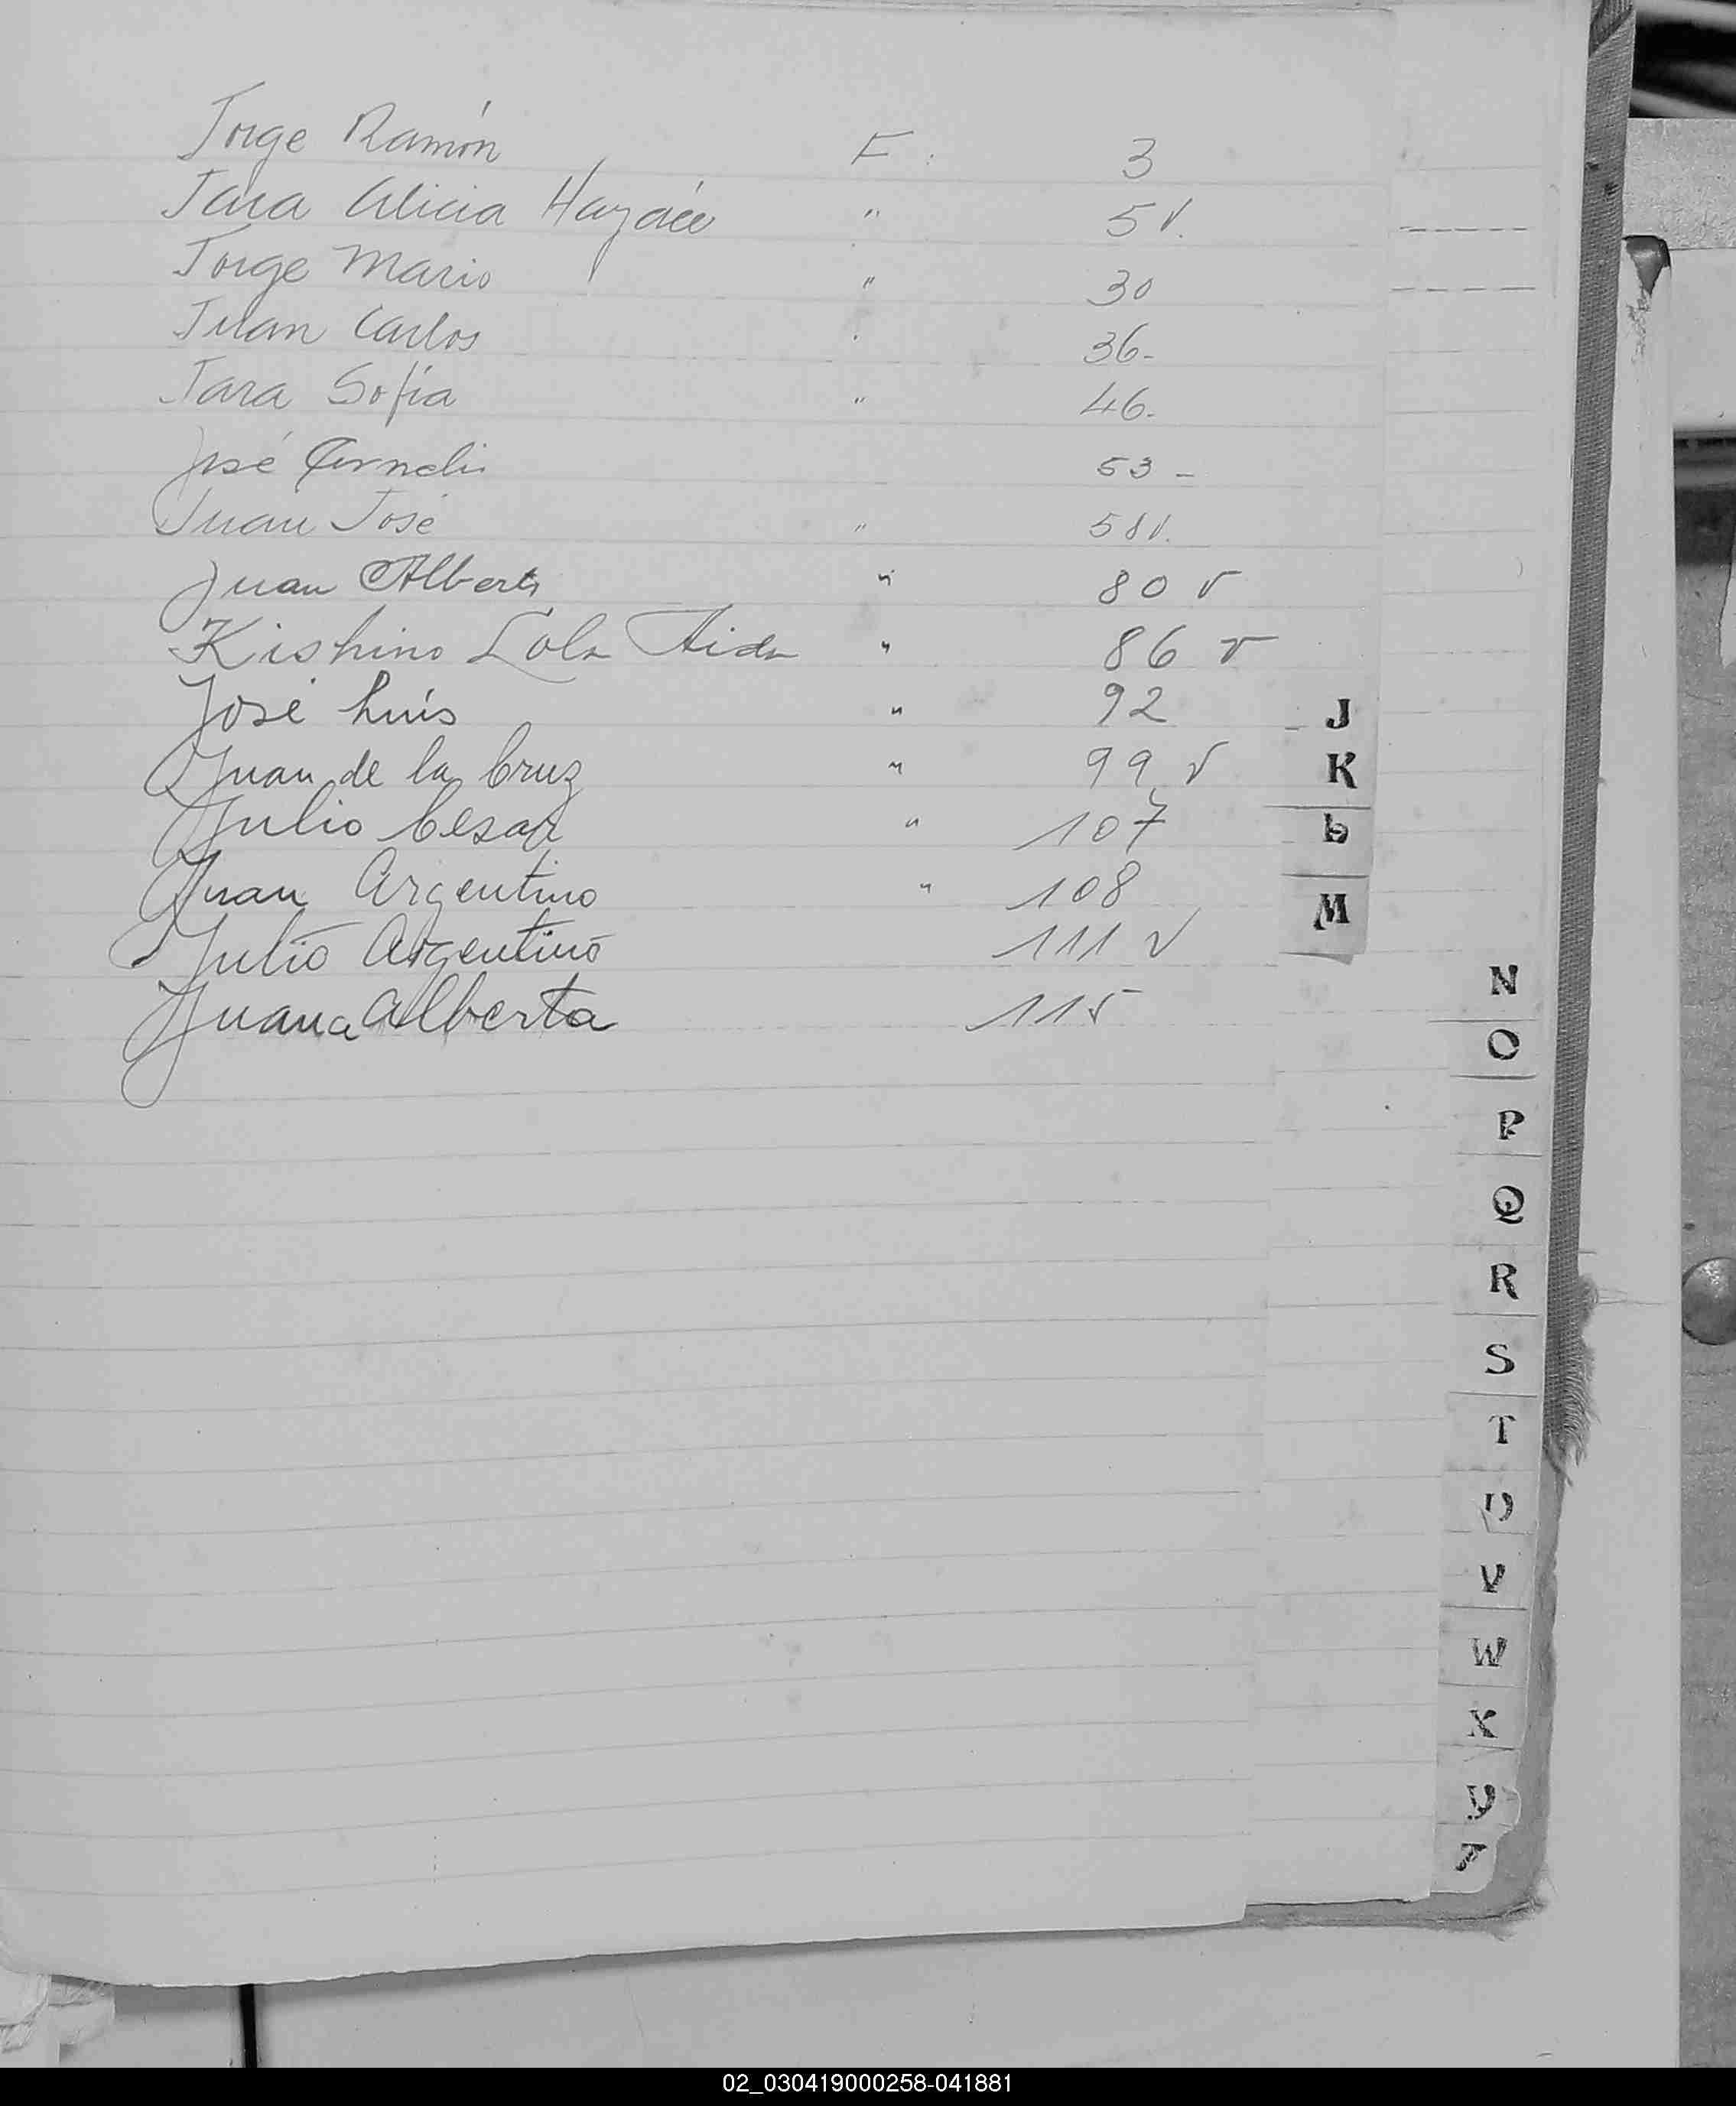 Jorge Ramón F. 3
Jara Alicia Haydée " 5 V.
Jorge Mario " 30
Juan Carlos " 36-
Jara Sofía " 46-
José Cornelio 53 -
Juan José " 58 V.
Juan Alberto " 80 V
Kishino Lola Aida " 86 v
José Luis " 92
Juan de la Cruz " 99 V
Julio Cesar " 107
Juan Argentino " 108
Julio Argentino 111 V
Juana Alberta 115
J
K
L
M
N
O
P
Q
R
S
T
U
V
W
X
Y
Z
02_030419000258-041881